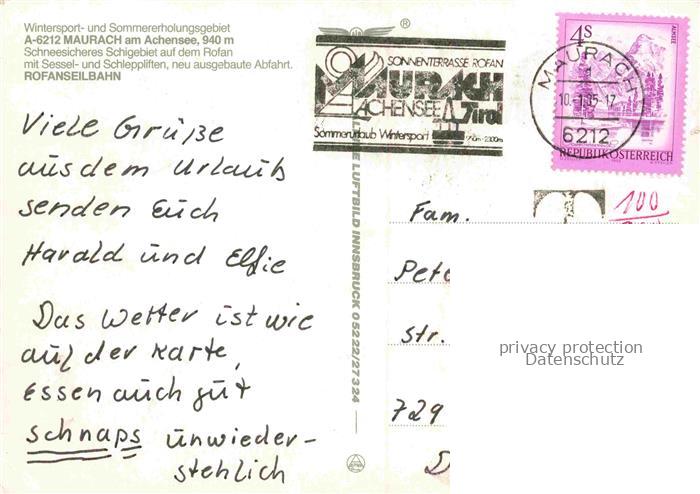 Wintersport- und Sommererholungsgebiet
A-6212 MAURACH am Achensee, 940 m
Schneesicheres Schigebiet auf dem Rofan
mit Sessel- und Schleppliften, neu ausgebaute Abfahrt.
ROFANSEILBAHN
Viele Grüße
aus dem Urlaub
senden Euch
Harald und Elfie
Das Wetter ist wie
auf der Karte,
Essen auch gut
schnaps unwieder-
stehlich
LUFTBILD INNSBRUCK 05222/27324
®
SONNENTERRASSE ROFAN
MAURACH
ACHENSEE Tirol
Sommerurlaub Wintersport
MAURACH
6212
4 S
ALMSEE
REPUBLIK ÖSTERREICH
100
Fam.
Pete
Str.
729
privacy protection
Datenschutz